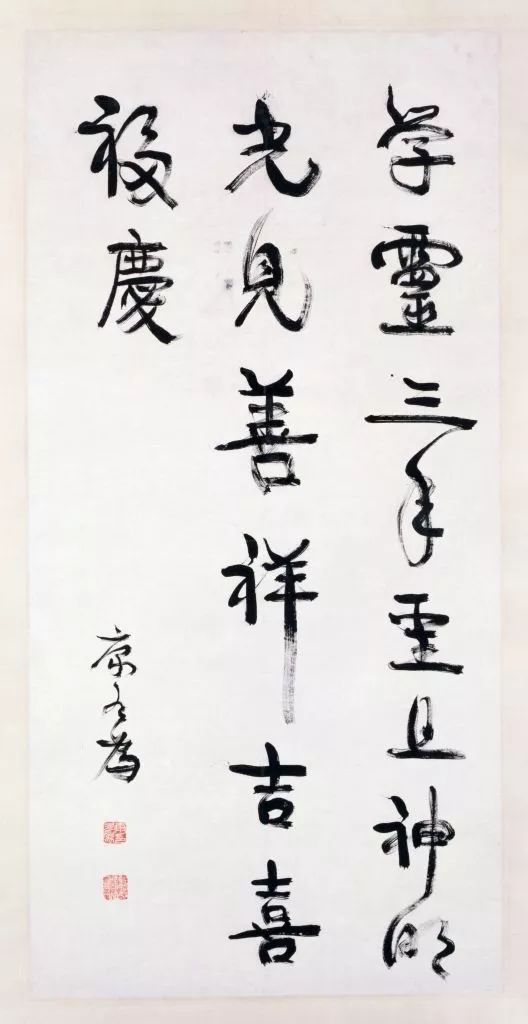 学靈三年聖且神明
光見善祥吉喜
福慶
康有為